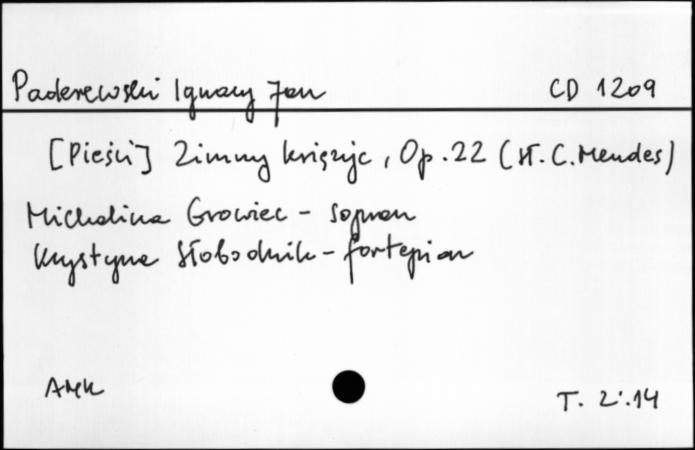 Paderewski Ignacy Jan CD 1209
[Pieśni] Zimny księżyc, Op. 22 (sł. C. Mendes)
Michalina Growiec - sopran
Krystyna Słobodnik - fortepian
AMK T. 2'.14